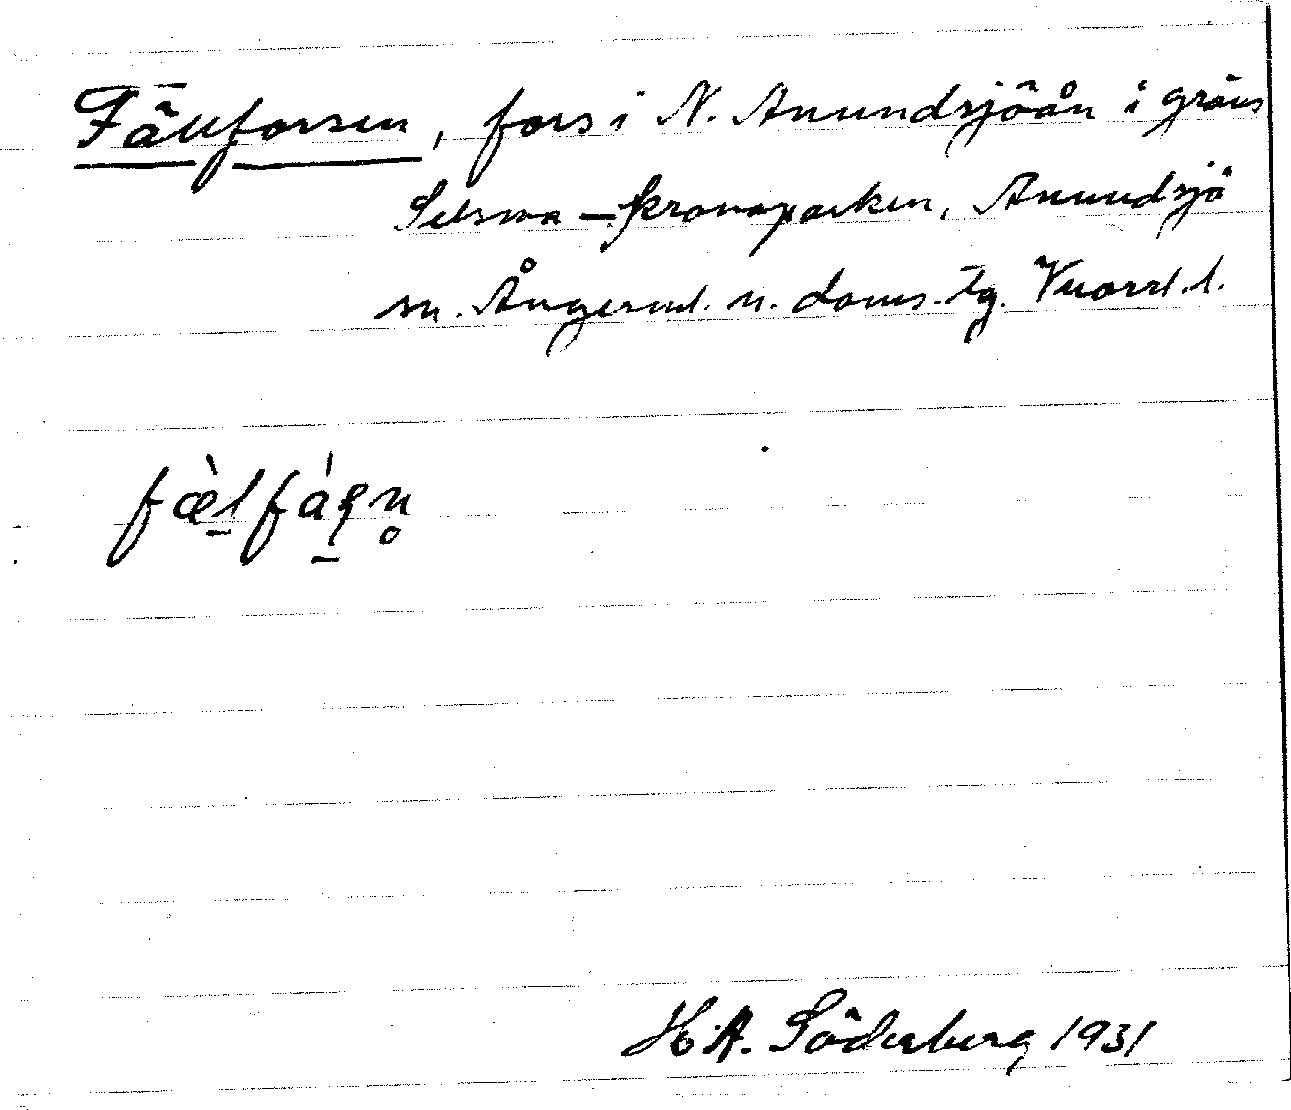 Fällforsen, fors i N. Anundsjöån i gräns
Selsma – kronoparken, Anundsjö
sn. Ångerml. n. doms. tg. Vnorrl. l.
fæ̀lfáṣn̥
H.A. Söderberg 1931